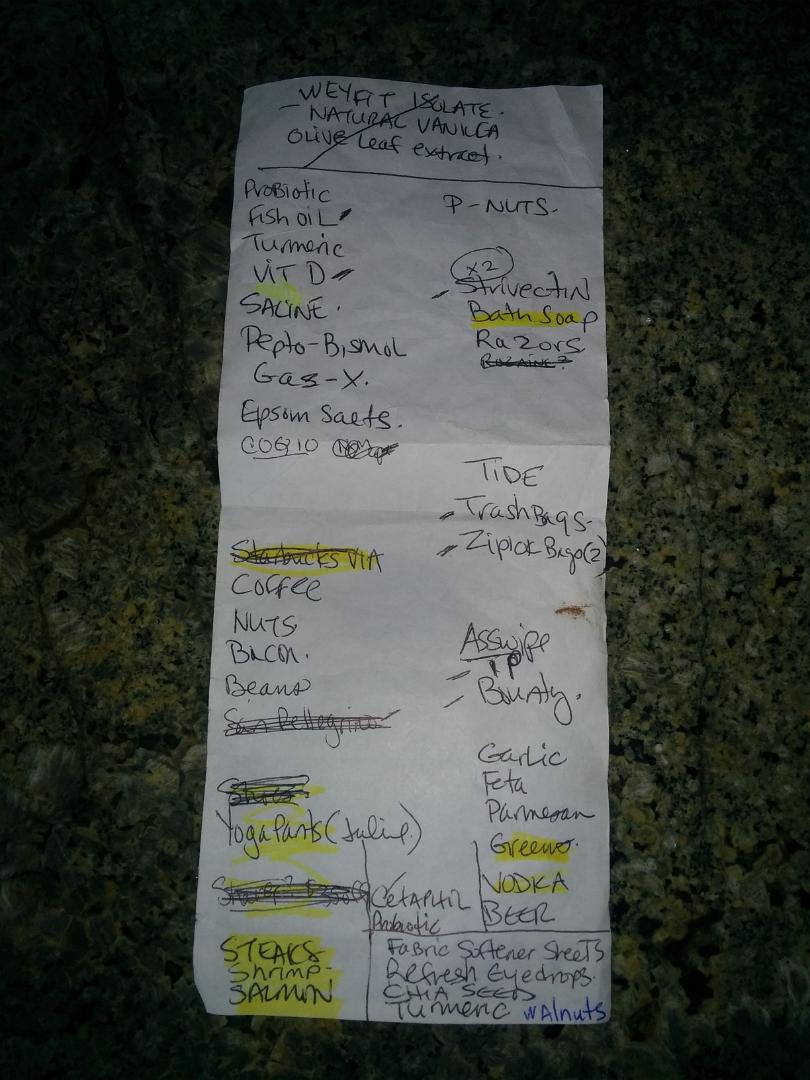 - WEYFIT ISOLATE.
NATURAL VANILLA
OLIVE Leaf extract.
ProBiotic
Fish OIL
Turmeric
VIT D
SALINE.
Pepto-Bismol
Gas-X.
Epsom Salts.
COQ10
Starbucks VIA
COFFEE
NUTS
BACON.
Beans
San Pellegrino
Yoga Pants
STEAKS
Shrimp-
SALMON
P-NUTS.
x2
Strivectin
Bath Soap
Razors
TIDE
Trash Bags-
Ziplok Bags (2)
Asswipe
TP
Bounty.
Garlic
Feta
Parmesan
Greens.
VODKA
BEER
CETAPHIL
Probiotic
Fabric Softener Sheets
Refresh Eyedrops.
CHIA SEEDS
Turmeric WAlnuts